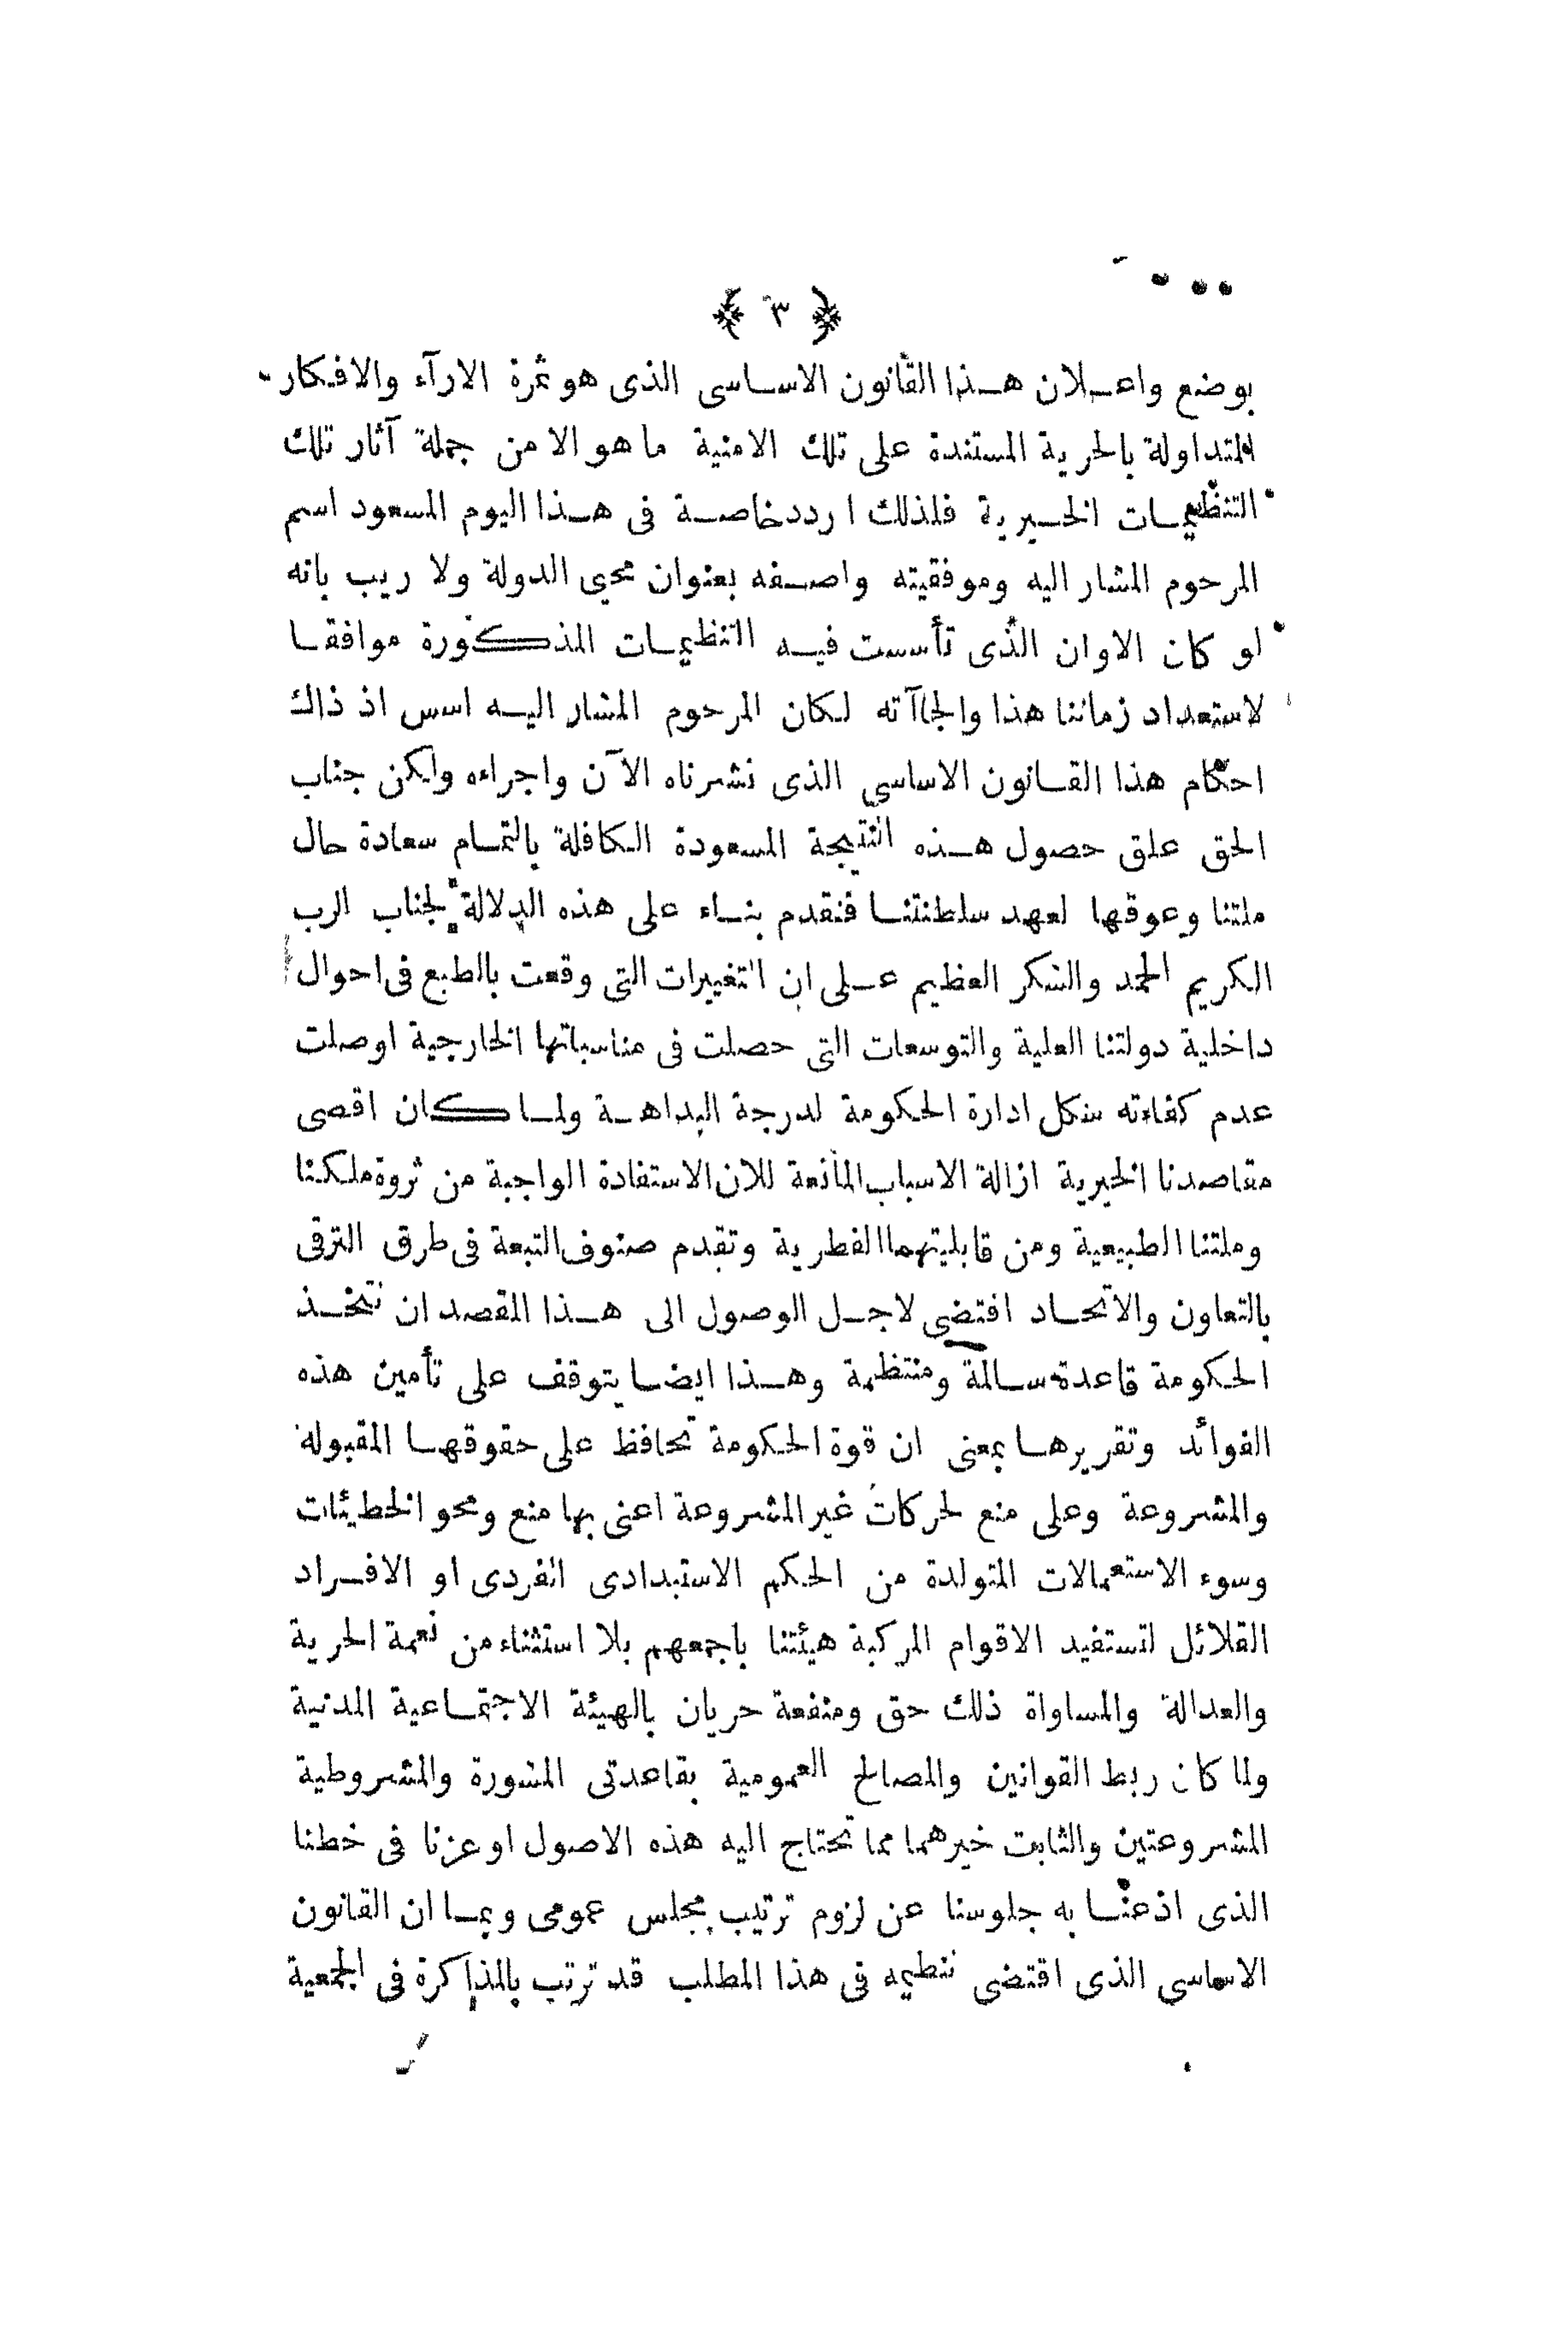 ﴿ ٣ ﴾
بوضع واعلان هذا القانون الاساسى الذى هو ثمرة الارآء والافكار
المتداولة بالحرية المستندة على تلك الامنية ما هو الا من جملة آثار تلك
التنظيمات الخيرية فلذلك اردد خاصة فى هذا اليوم المسعود اسم
المرحوم المشار اليه وموفقيته واصفه بعنوان محيى الدولة ولا ريب بانه
لو كان الاوان الذى تأسست فيه التنظيمات المذكورة موافقا
لاستعداد زماننا هذا والجاآته لكان المرحوم المشار اليه اسس اذ ذاك
احكام هذا القانون الاساسى الذى نشرناه الآن واجراءه ولكن جناب
الحق علق حصول هذه النتيجة المسعودة الكافلة بالتمام سعادة حال
ملتنا وعوقها لعهد سلطنتنا فنقدم بناء على هذه الدلالة لجناب الرب
الكريم الحمد والشكر العظيم على ان التغييرات التى وقعت بالطبع فى احوال
داخلية دولتنا العلية والتوسعات التى حصلت فى مناسباتها الخارجية اوصلت
عدم كفاءته شكل ادارة الحكومة لدرجة البداهة ولما كان اقصى
مقاصدنا الخيرية ازالة الاسباب المانعة للان الاستفادة الواجبة من ثروة ملكنا
وملتنا الطبيعية ومن قابليتهما الفطرية وتقدم صنوف التبعة فى طرق الترقى
بالتعاون والاتحاد اقتضى لاجل الوصول الى هذا المقصد ان تتخذ
الحكومة قاعدة سالمة ومنتظمة وهذا ايضا يتوقف على تأمين هذه
الفوائد وتقريرها بمعنى ان قوة الحكومة تحافظ على حقوقها المقبولة
والمشروعة وعلى منع لحركات غير المشروعة اعنى بها منع ومحو الخطيئات
وسوء الاستعمالات المتولدة من الحكم الاستبدادى الفردى او الافراد
القلائل لتستفيد الاقوام المركبة هيئتنا باجمعهم بلا استثناء من نعمة الحرية
والعدالة والمساواة ذلك حق ومنفعة حريان بالهيئة الاجتماعية المدنية
ولما كان ربط القوانين والمصالح العمومية بقاعدتى المشورة والمشروطية
المشروعتين والثابت خيرهما مما تحتاج اليه هذه الاصول اوعزنا فى خطنا
الذى اذعنا به جلوسنا عن لزوم ترتيب مجلس عمومى وبما ان القانون
الاساسى الذى اقتضى تنظيمه فى هذا المطلب قد ترتب بالمذاكرة فى الجمعية